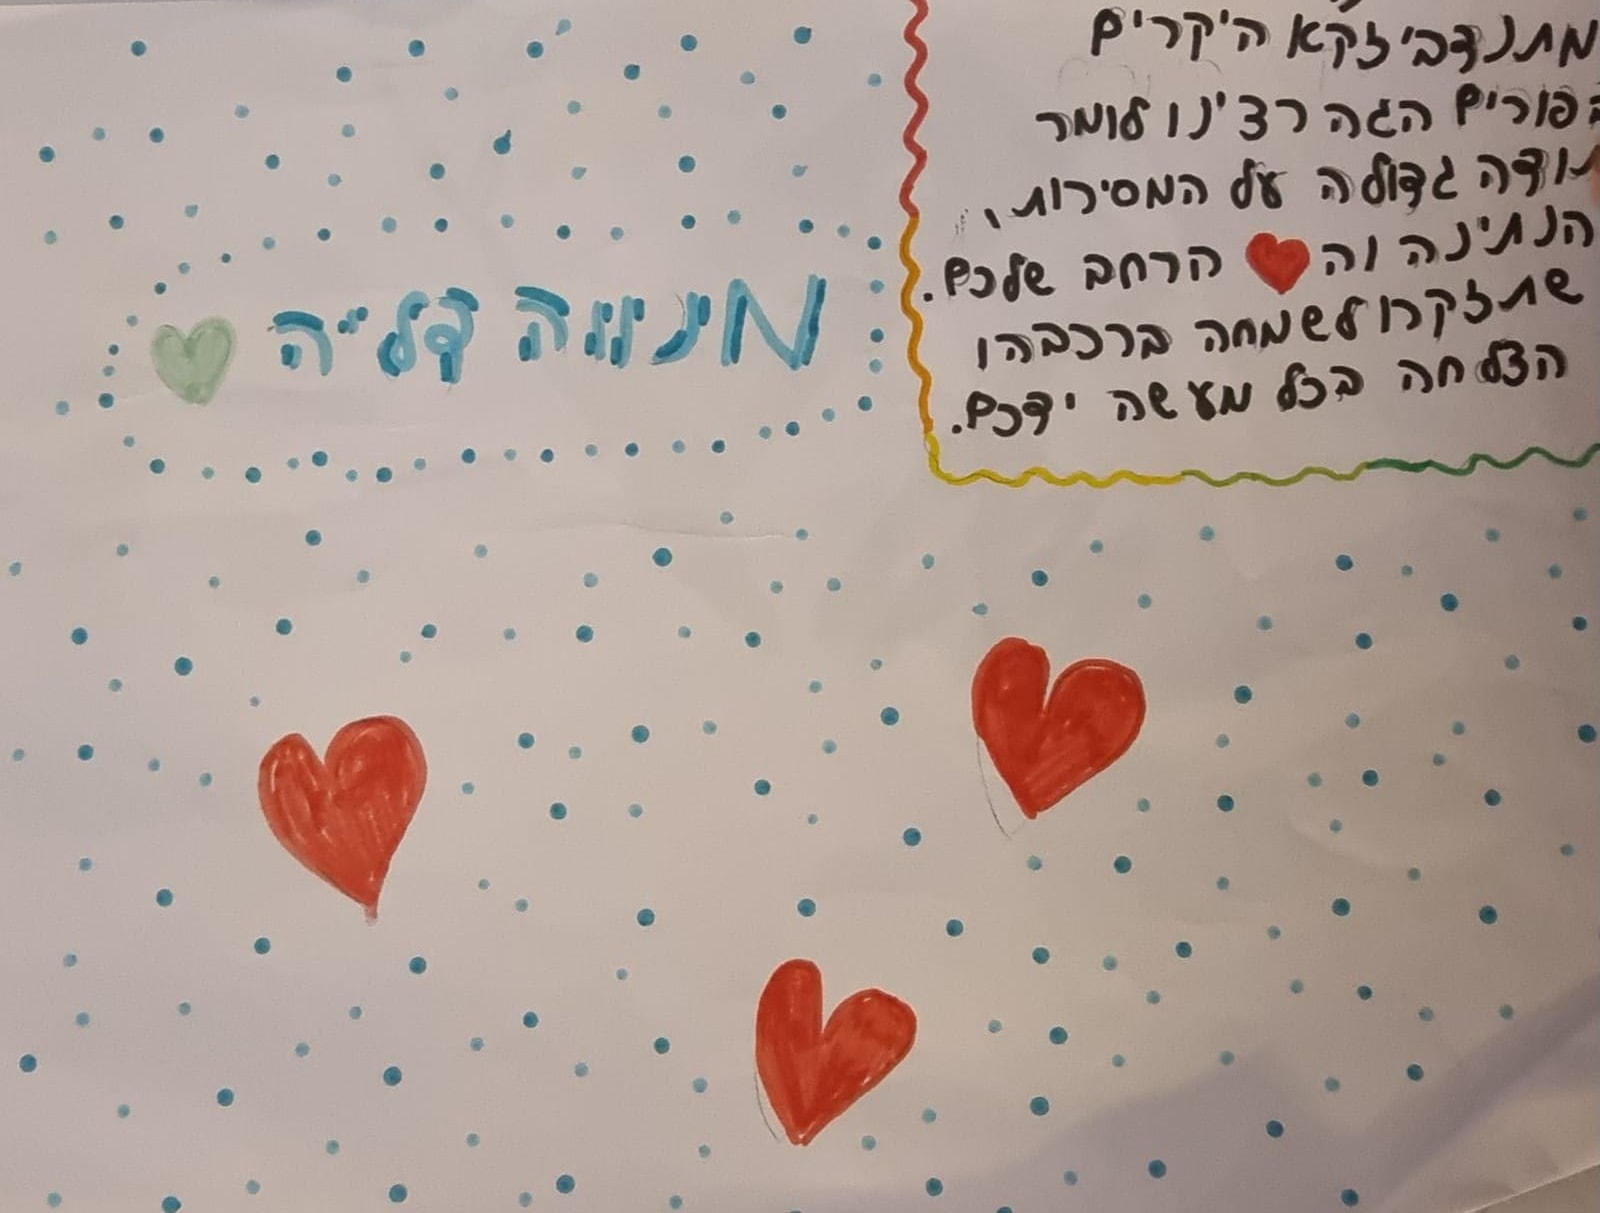 מתנדבי זקא היקרים
בפורים הגה רצינו לומר
תודה גדולה על המסירות,
הנתינה וה❤ הרחב שלכם.
שתזקרו לשמחה ברכבהו
הצלחה בכל מעשה ידכם.
מנווה דליה